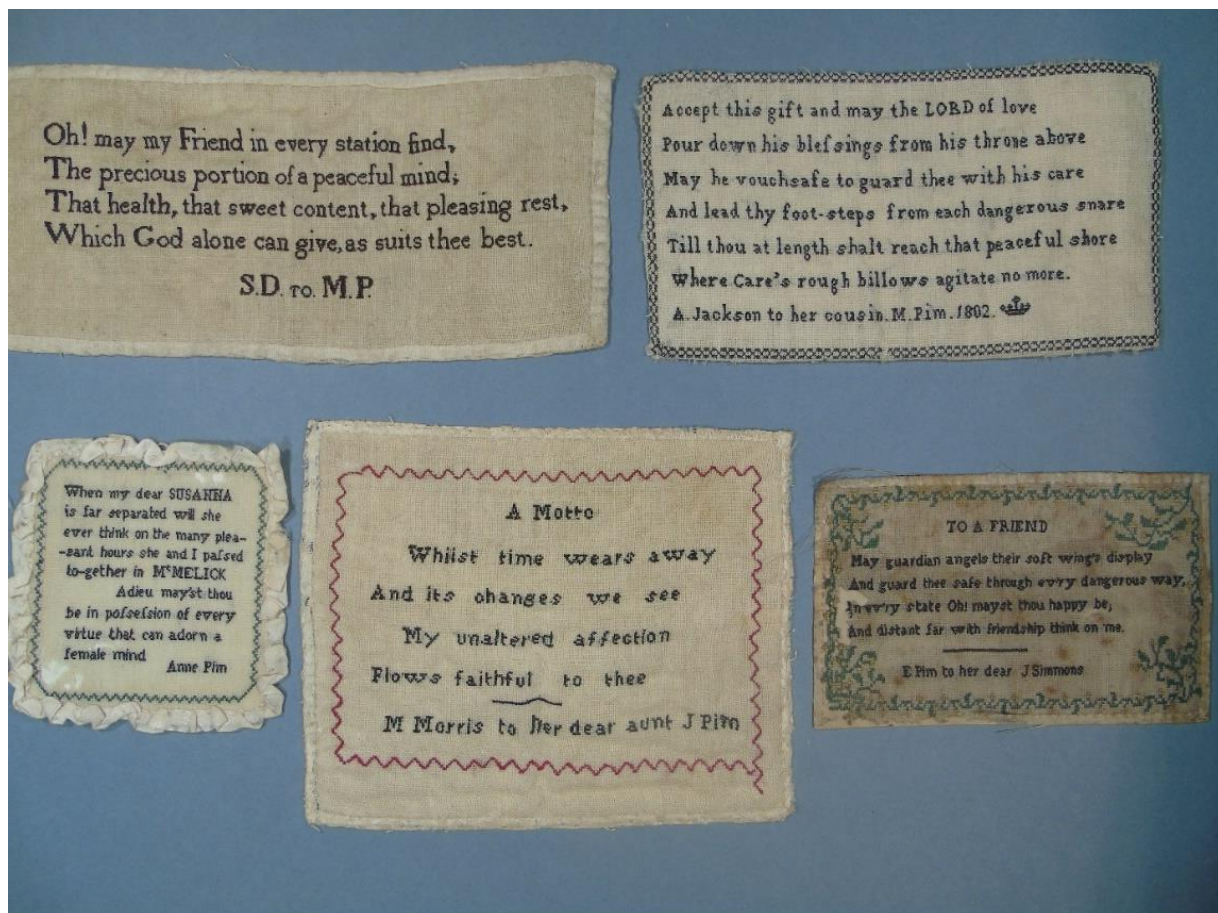 Oh! may my Friend in every station find,
The precious portion of a peaceful mind;
That health, that sweet content, that pleasing rest,
Which God alone can give, as suits thee best.
S.D. TO. M.P.
Accept this gift and may the LORD of love
Pour down his bleſsings from his throne above
May he vouchsafe to guard thee with his care
And lead thy foot-steps from each dangerous snare
Till thou at length shalt reach that peaceful shore
Where Care's rough billows agitate no more.
A. Jackson to her cousin. M. Pim. 1802.
When my dear SUSANNA
is far separated will she
ever think on the many plea-
-sant hours she and I paſsed
to-gether in MᵗMELICK
Adieu may'st thou
be in poſseſsion of every
virtue that can adorn a
female mind
Anne Pim
A Motto
Whilst time wears away
And its changes we see
My unaltered affection
Flows faithful to thee
M Morris to her dear aunt J Pim
TO A FRIEND
May guardian angels their soft wing's display
And guard thee safe through ev'ry dangerous way,
In ev'ry state Oh! mayst thou happy be,
And distant far with friendship think on me.
E Pim to her dear J Simmons